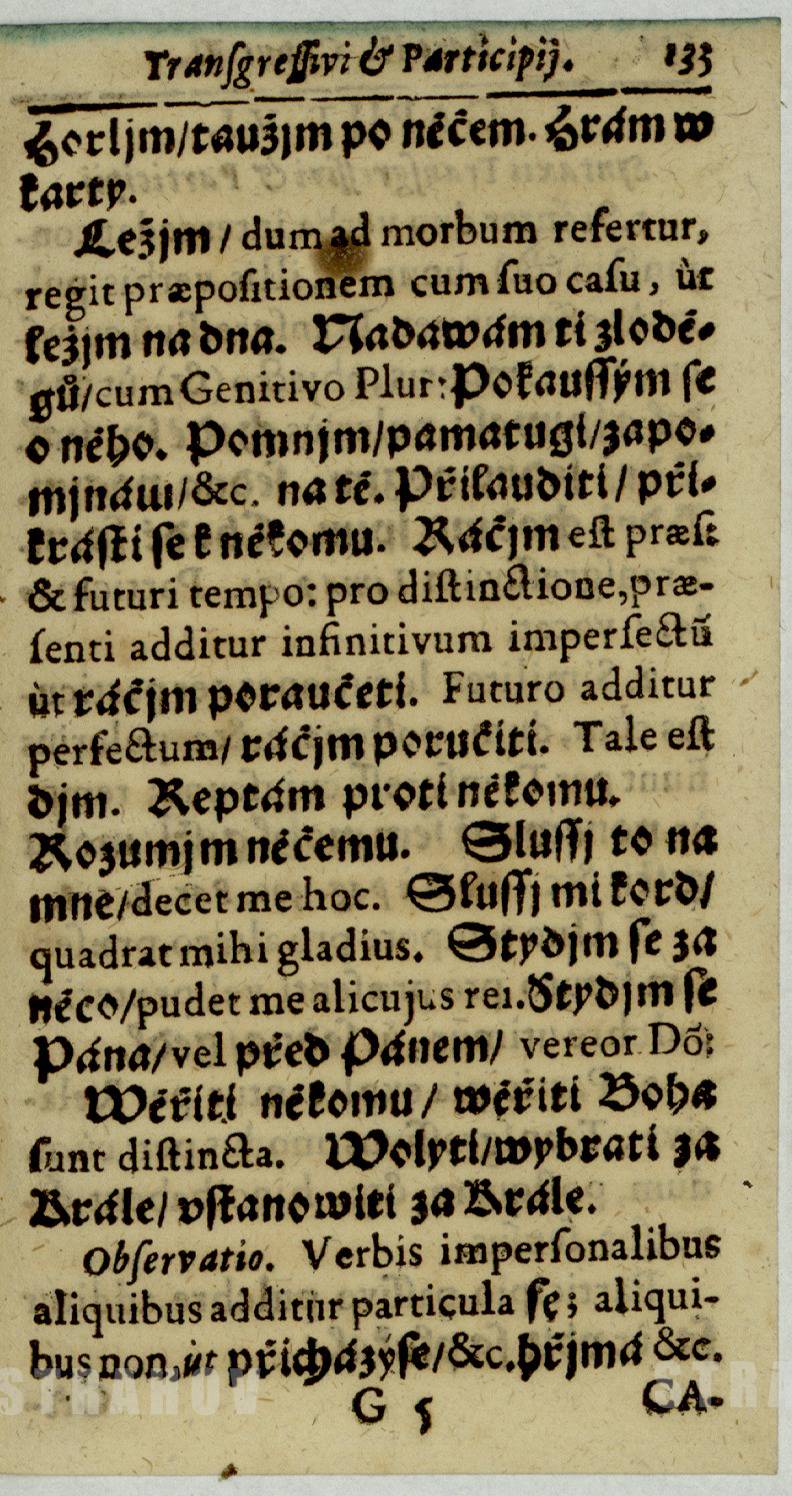 Tranſgreſſivi & Participij. 133
Horljm/taužjm po něčem. Hrám w
karty.
Ležjm / dum ad morbum refertur,
regit præpoſitionem cum ſuo caſu, ùt
ležjm na dna. Nadawám ti zlodě-
gů/cum Genitivo Plur: Pokauſſým ſe
o něho. Pomnjm/pamatugi/zapo-
mjnám/&c. na tě. Přilauditi / při-
kráſti ſe k někomu. Ráčjm eſt præſ:
& futuri tempo: pro diſtinctione, præ-
ſenti additur infinitivum imperfectū
ùt ráčjm poraučeti. Futuro additur
perfectum/ ráčjm poručiti. Tale eſt
djm. Reptám proti někomu.
Rozumjm něčemu. Sluſſj to na
mne/decet me hoc. Sluſſj mi kord/
quadrat mihi gladius. Stydjm ſe za
něco/pudet me alicujus rei. Stydjm ſe
Pána/vel před Pánem/ vereor Dō:
Wěřiti někomu / wěřiti Boha
ſunt diſtincta. Wolyti/wybrati za
Krále/ vſtanowiti za Krále.
Obſervatio. Verbis imperſonalibus
aliquibus additur particula ſe; aliqui-
bus non, ùt přicházýſe/&c. hřjmá &c.
G 5 CA-
STRAHOV